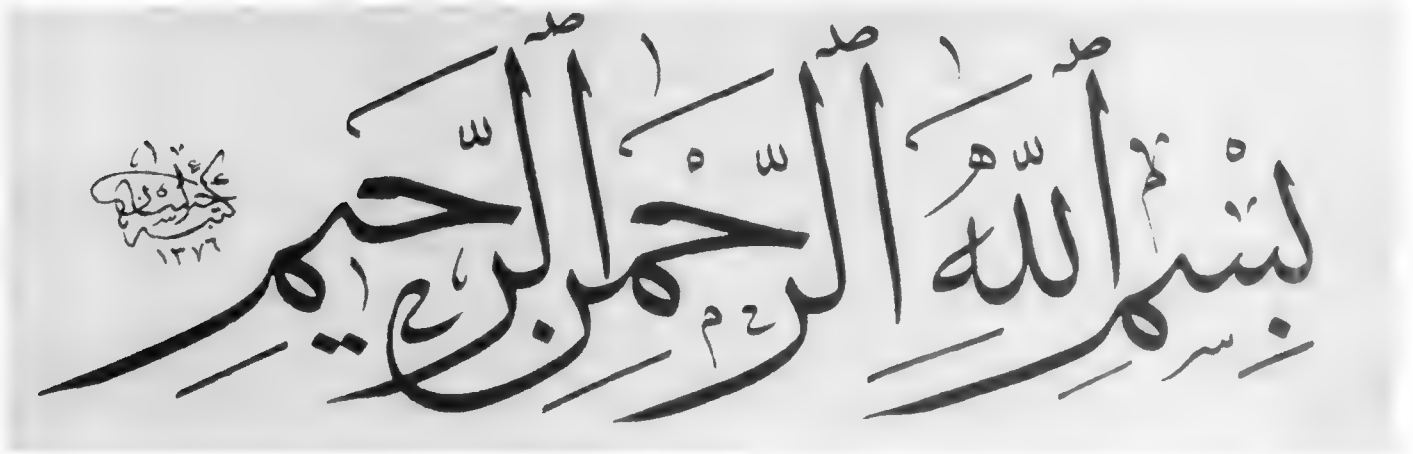 بِسْمِ ٱللَّهِ ٱلرَّحْمَٰنِ ٱلرَّحِيمِ
كتبه
١٣٧٦